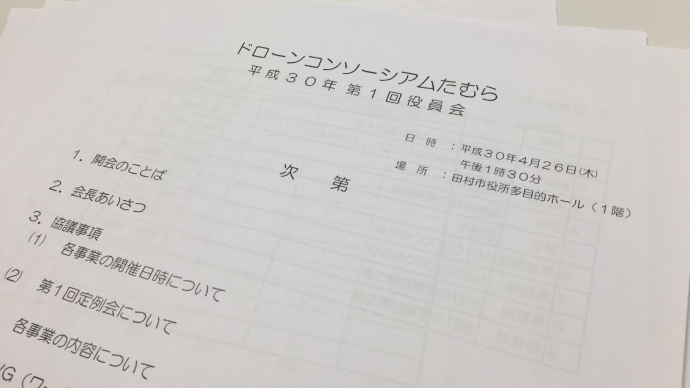 ドローンコンソーシアムたむら
平成30年 第1回役員会
日 時 : 平成30年4月26日(木)
午後1時30分
場 所 : 田村市役所多目的ホール(1階)
次 第
1. 開会のことば
2. 会長あいさつ
3. 協議事項
(1) 各事業の開催日時について
(2) 第1回定例会について
各事業の内容について